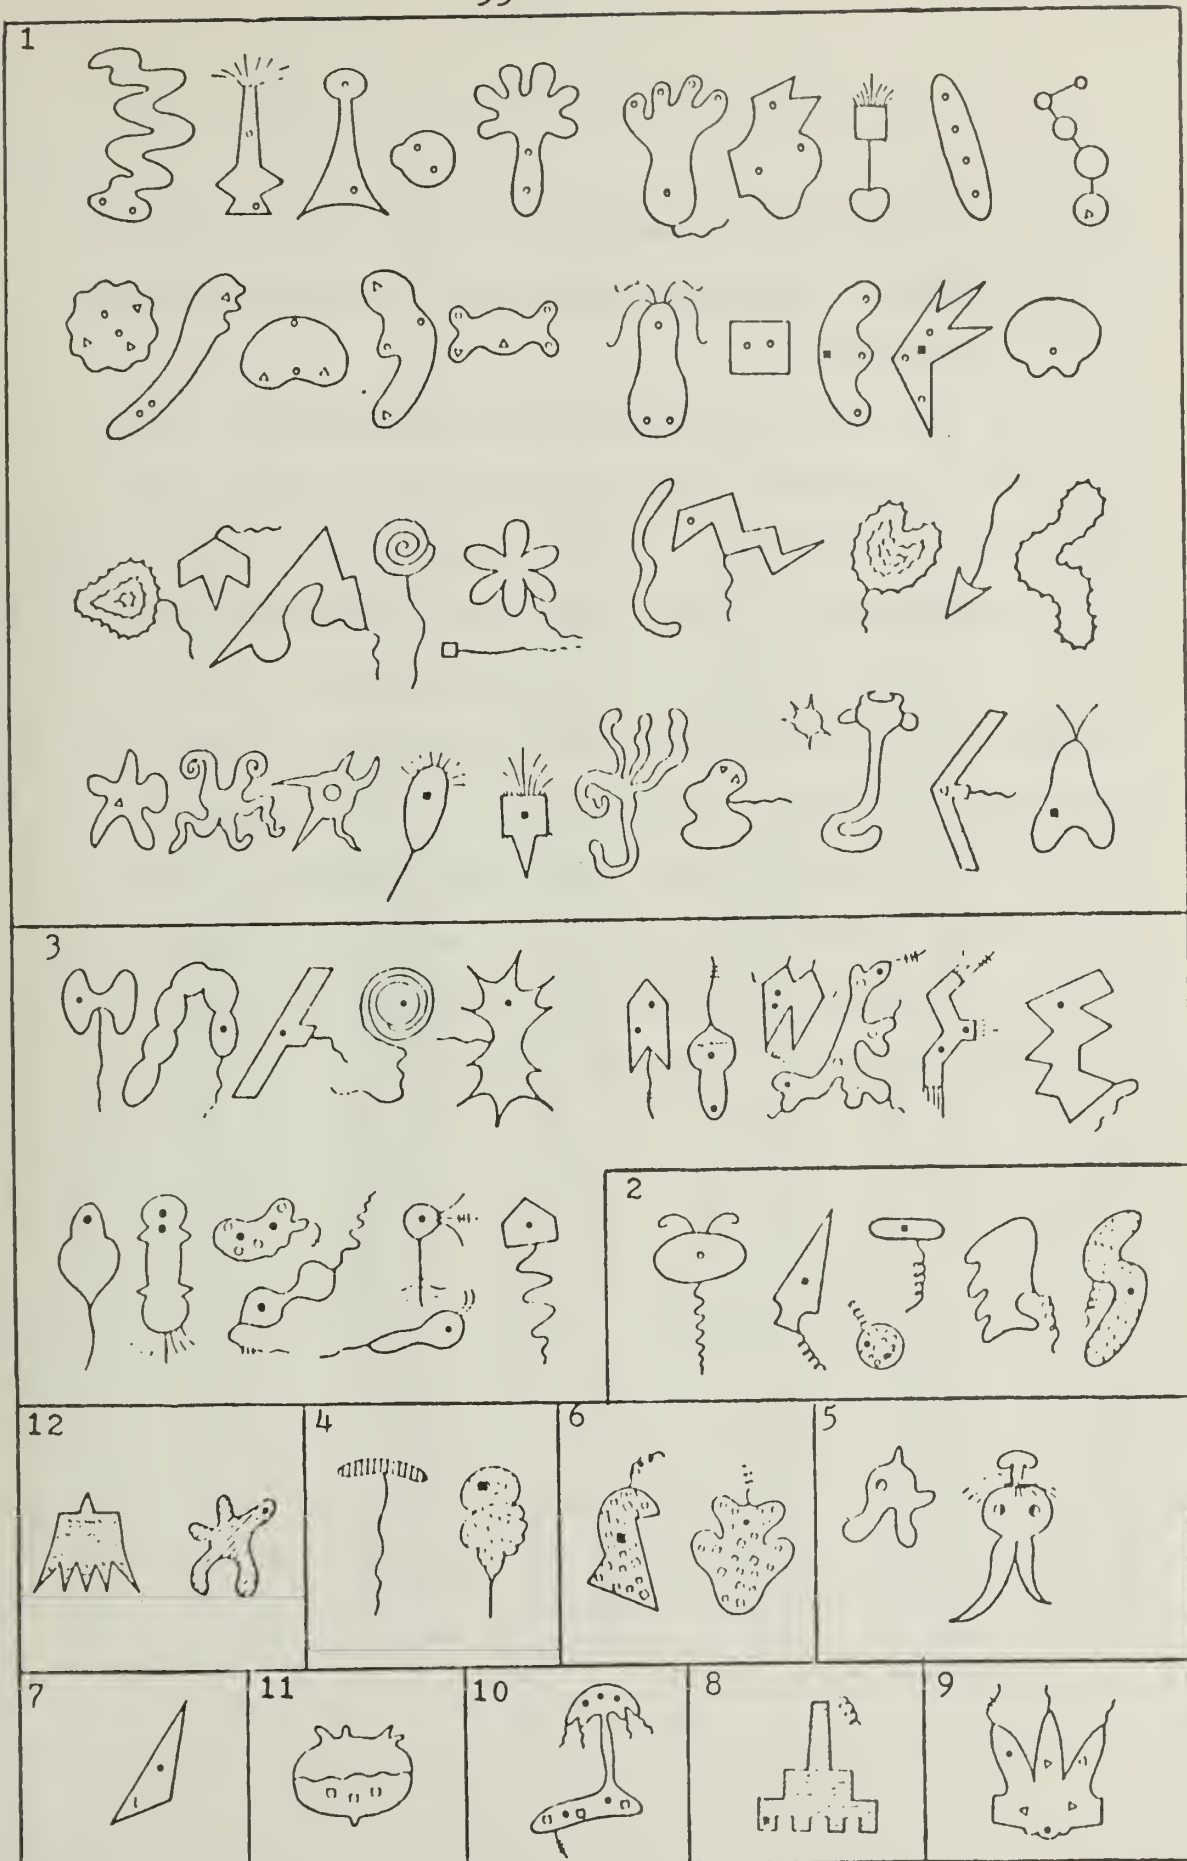 1
3
2
12 4 6 5
7 11 10 8 9